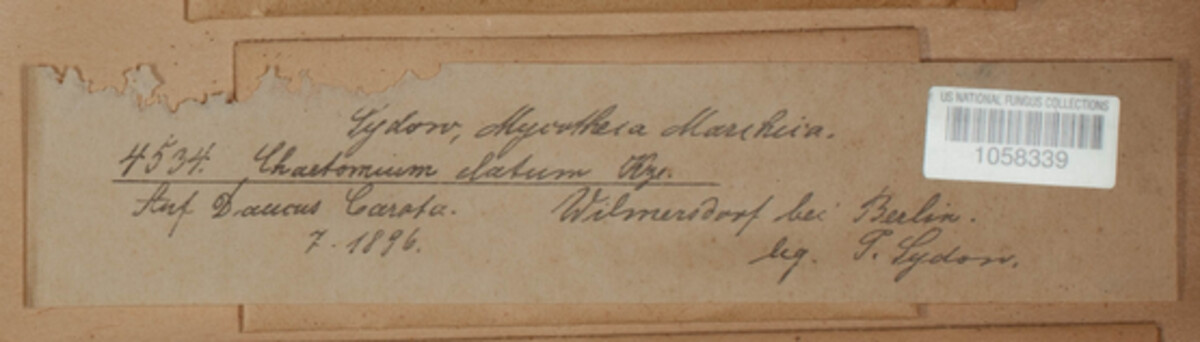 Sydow, Mycotheca Marchica.
4534. Chaetomium elatum Kze.
Auf Daucus Carota. Wilmersdorf bei Berlin.
7. 1896.
leg. P. Sydow.
US NATIONAL FUNGUS COLLECTIONS
1058339